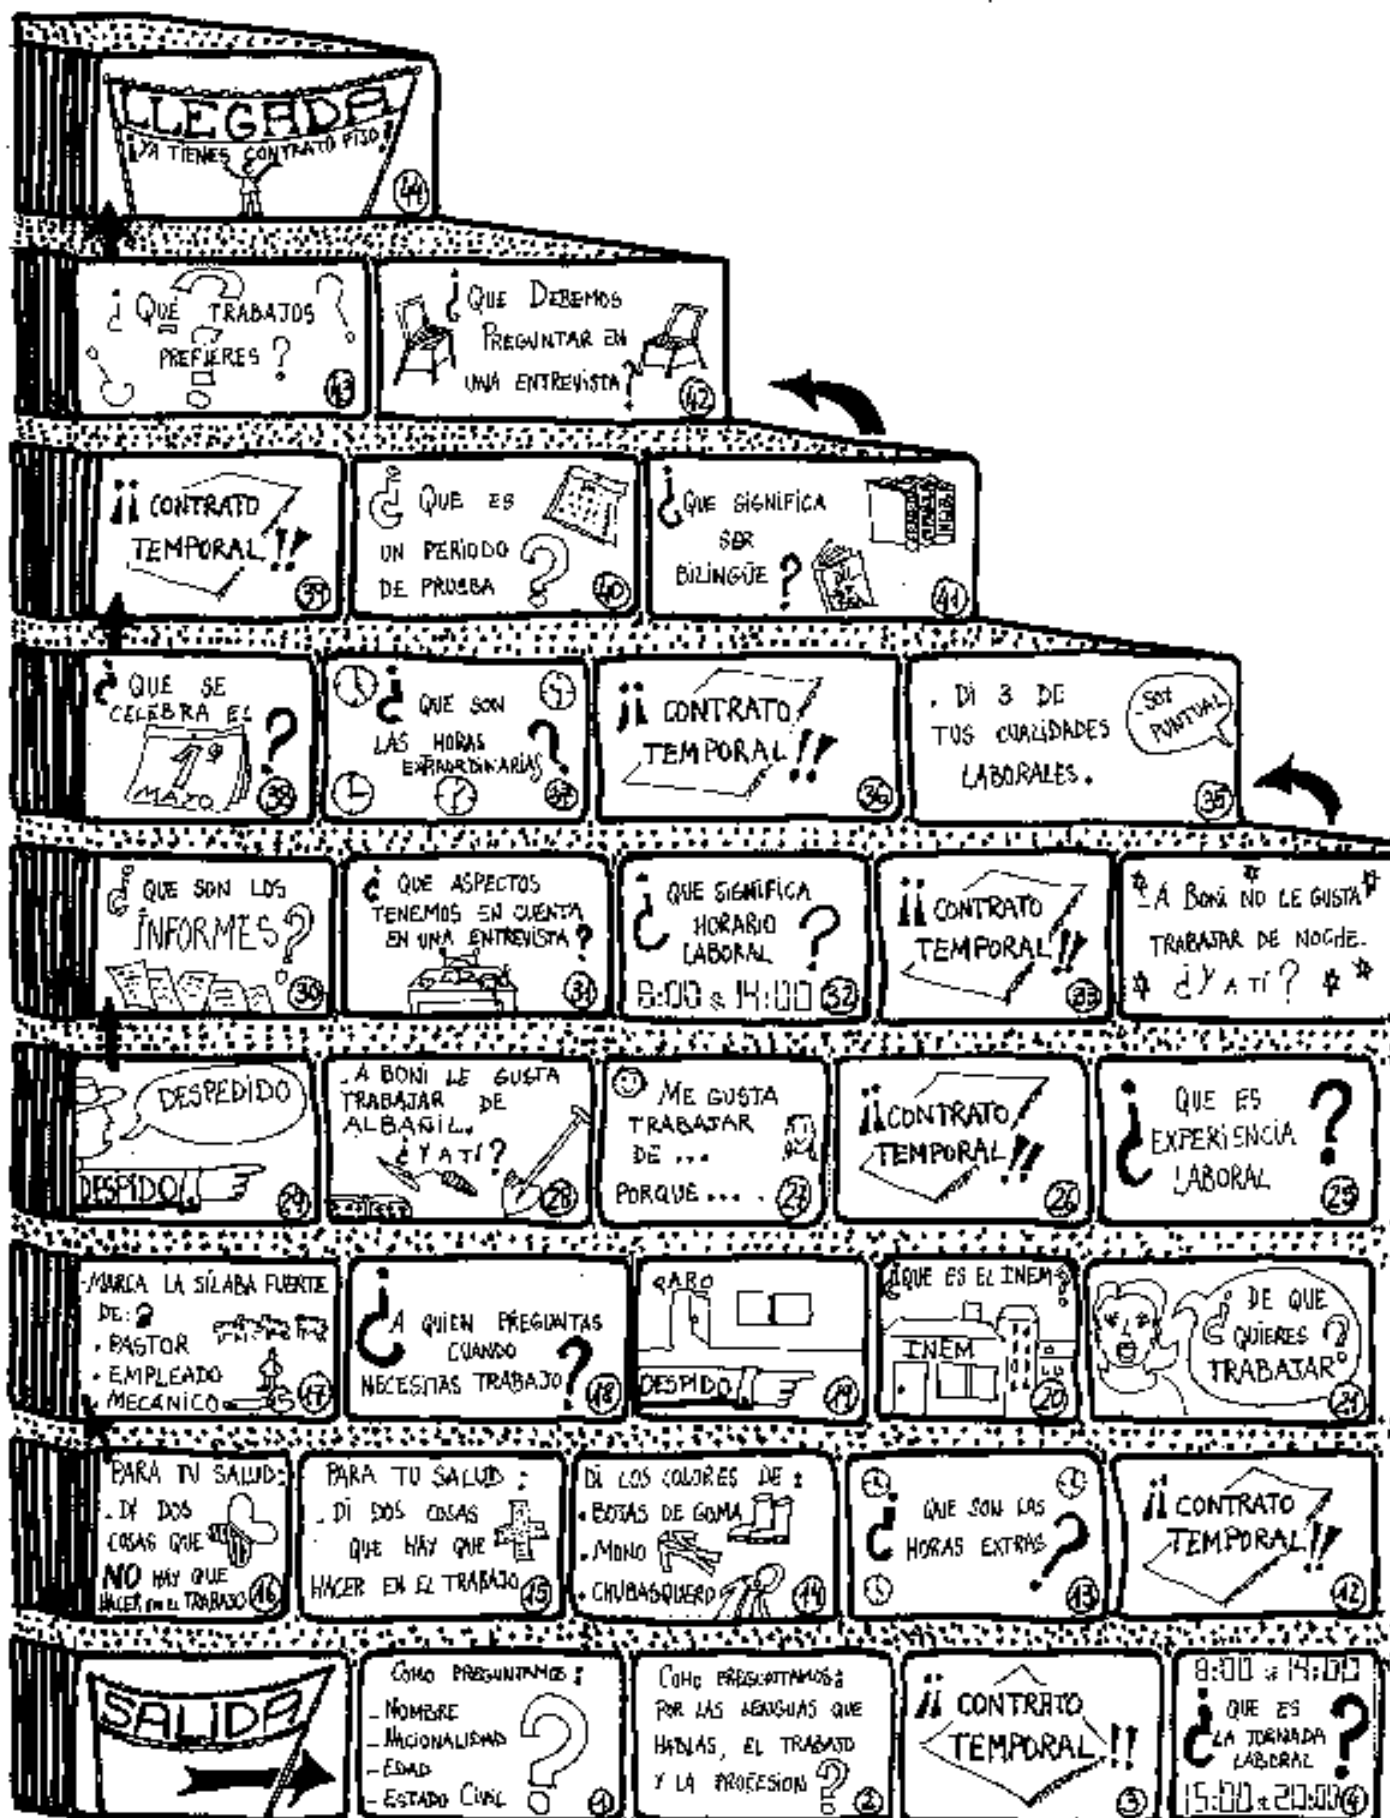 LLEGADA
¡YA TIENES CONTRATO FIJO!
44
¿QUÉ TRABAJOS
PREFIERES?
43
¿QUE DEBEMOS
PREGUNTAR EN
UNA ENTREVISTA?
42
¡¡CONTRATO
TEMPORAL!!
39
¿QUE ES
UN PERIODO
DE PRUEBA?
40
¿QUE SIGNIFICA
SER
BILINGÜE?
41
¿QUE SE
CELEBRA EL
1º
MAYO?
38
¿QUE SON
LAS HORAS
EXTRAORDINARIAS?
37
¡¡CONTRATO
TEMPORAL!!
36
. DI 3 DE
TUS CUALIDADES
LABORALES.
-SOY
PUNTUAL
35
¿QUE SON LOS
INFORMES?
30
¿QUE ASPECTOS
TENEMOS EN CUENTA
EN UNA ENTREVISTA?
31
¿QUE SIGNIFICA
HORARIO
LABORAL?
8:00 a 14:00
32
¡¡CONTRATO
TEMPORAL!!
33
-A BONI NO LE GUSTA
TRABAJAR DE NOCHE.
¿Y A TÍ?
DESPEDIDO
DESPIDO
29
.A BONI LE GUSTA
TRABAJAR DE
ALBAÑIL.
¿Y A TÍ?
28
ME GUSTA
TRABAJAR
DE ...
PORQUE ....
27
¡¡CONTRATO
TEMPORAL!!
26
¿QUE ES
EXPERIENCIA
LABORAL?
25
-MARCA LA SÍLABA FUERTE
DE:
. PASTOR
. EMPLEADO
. MECÁNICO
17
¿A QUIEN PREGUNTAS
CUANDO
NECESITAS TRABAJO?
18
PARO
DESPIDO
19
¿QUE ES EL INEM?
INEM
20
¿DE QUE
QUIERES
TRABAJAR?
21
PARA TU SALUD:
. DI DOS
COSAS QUE
NO HAY QUE
HACER EN EL TRABAJO
16
PARA TU SALUD:
. DI DOS COSAS
QUE HAY QUE
HACER EN EL TRABAJO
15
DI LOS COLORES DE:
. BOTAS DE GOMA
. MONO
. CHUBASQUERO
14
¿QUE SON LAS
HORAS EXTRAS?
13
¡¡CONTRATO
TEMPORAL!!
12
SALIDA
COMO PREGUNTAMOS:
- NOMBRE
- NACIONALIDAD
- EDAD
- ESTADO CIVIL
1
COMO PREGUNTAMOS:
POR LAS LENGUAS QUE
HABLAS, EL TRABAJO
Y LA PROFESION?
2
¡¡CONTRATO
TEMPORAL!!
3
8:00 a 14:00
¿QUE ES
LA JORNADA
LABORAL?
15:00 a 20:00
4